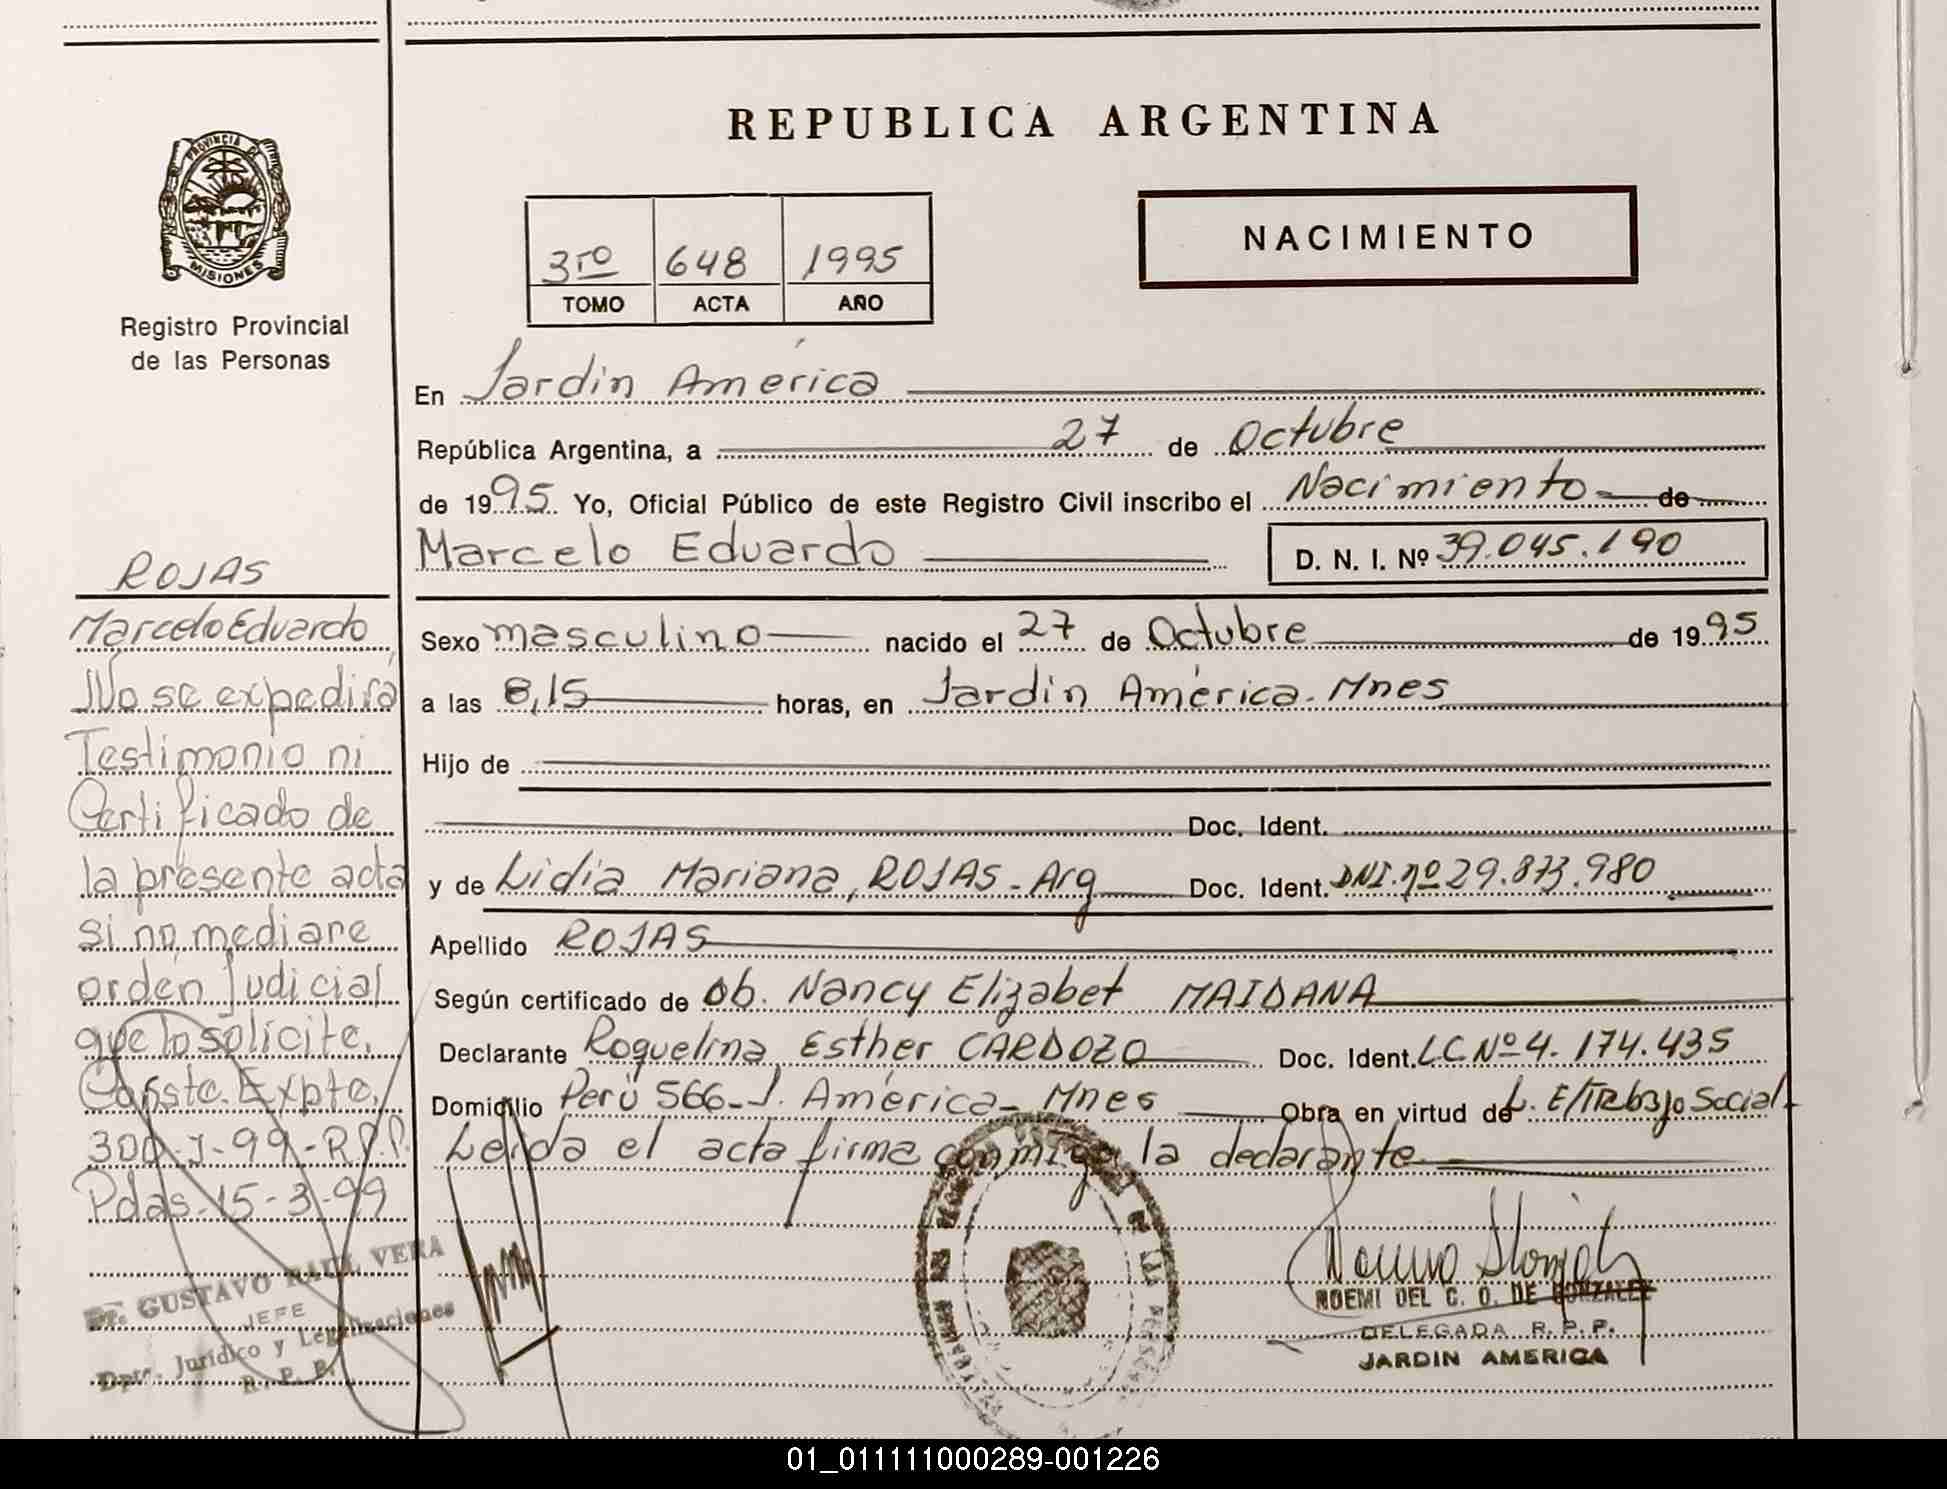 REPUBLICA ARGENTINA
PROVINCIA DE
MISIONES
Registro Provincial
de las Personas
NACIMIENTO
3ro 648 1995
TOMO ACTA AÑO
En Jardín América
República Argentina, a 27 de Octubre
de 1995. Yo, Oficial Público de este Registro Civil inscribo el Nacimiento de
Marcelo Eduardo D. N. I. Nº 39.045.190
Sexo masculino nacido el 27 de Octubre de 1995
a las 8,15 horas, en Jardín América. Mnes
Hijo de
Doc. Ident.
y de Lidia Mariana, ROJAS - Arg Doc. Ident. DNI. nº 29.873.980
Apellido ROJAS
Según certificado de Ob. Nancy Elizabet MAIDANA
Declarante Roquelina Esther CARDOZO Doc. Ident. LC Nº 4.174.435
Domicilio Perú 566 - J. América - Mnes Obra en virtud de L. E/Trabajo Social
Leída el acta firma conmigo la declarante
NOEMI DEL C. O. DE GONZALEZ
DELEGADA R.P.P.
JARDIN AMERICA
ROJAS
Marcelo Eduardo
No se expedirá
Testimonio ni
Certificado de
la presente acta
si no mediare
orden judicial
que lo solicite.
Conste. Expte.
300-J-99-R.P.P.
Pdas. 15-3-99
Dr. GUSTAVO RAUL VERA
JEFE
Dpto. Jurídico y Legalizaciones
R. P. P.
01_011111000289-001226